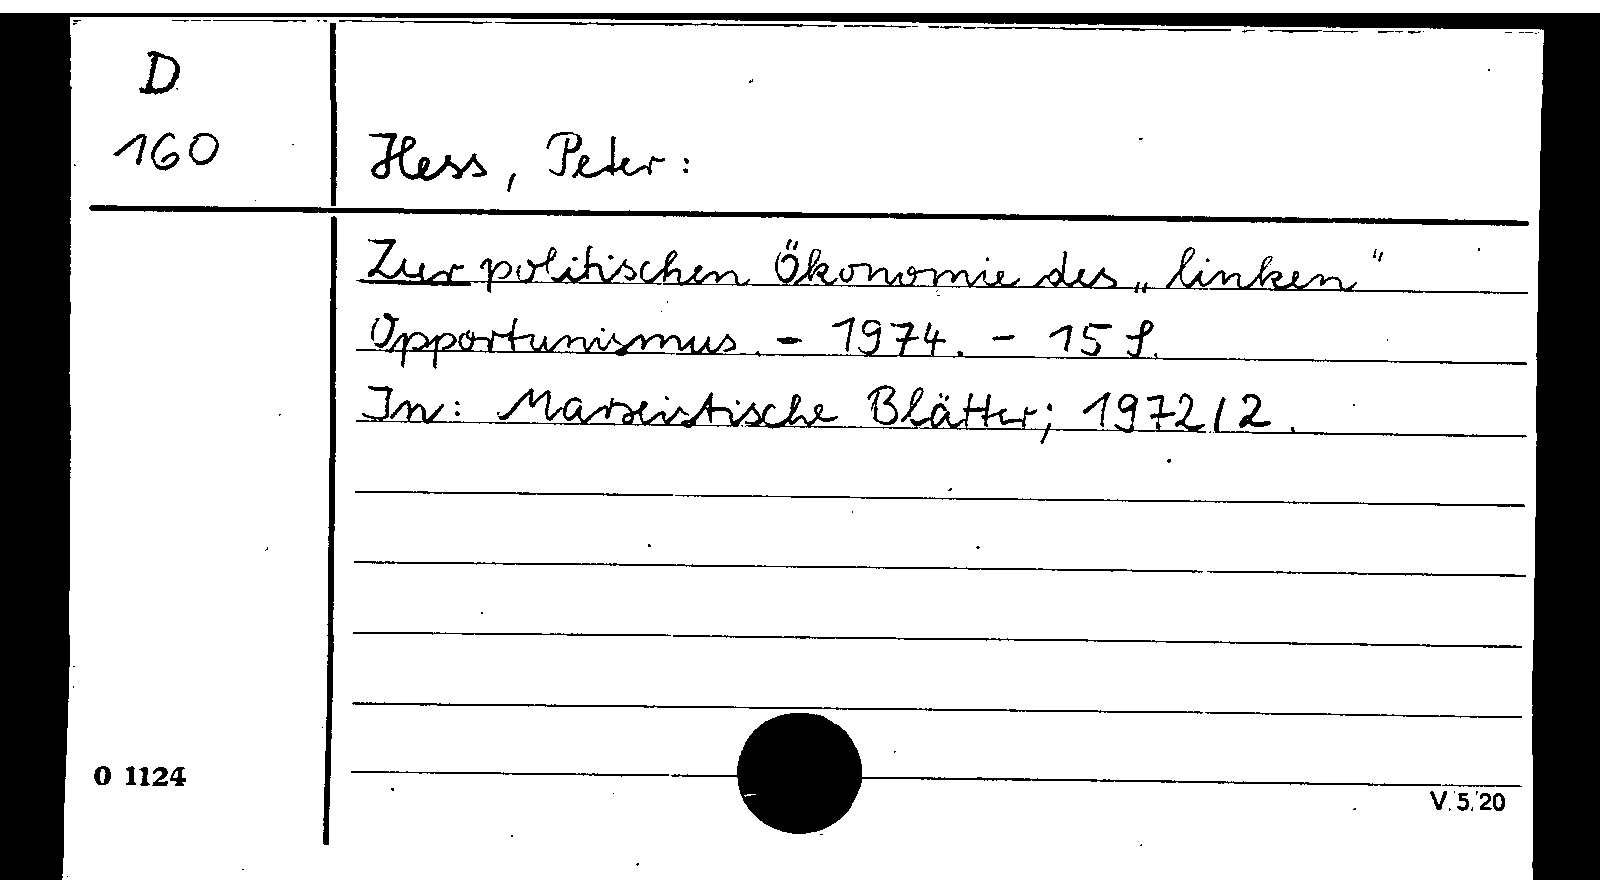 D
160
Hess, Peter:
Zur politischen Ökonomie des „linken“
Opportunismus. - 1974. - 15 S.
In: Marxistische Blätter; 1972/2.
O 1124
V. 5. 20